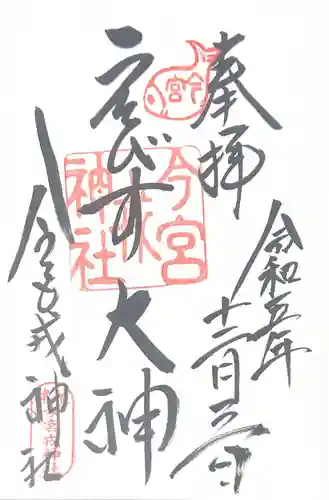 奉拝
令和五年
十二月三日
ゑびす大神
今宮戎神社
今宮
今宮戎神社